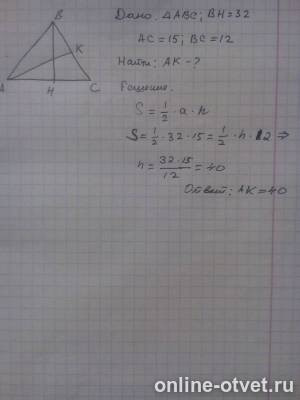 Дано: △ABC; BH=32
AC=15; BC=12
Найти: AK-?
Решение.
S=1/2·a·h
S=1/2·32·15=1/2·h·12 ⇒
h=32·15/12=40
Ответ: AK=40
B
K
A
H
C
online-otvet.ru